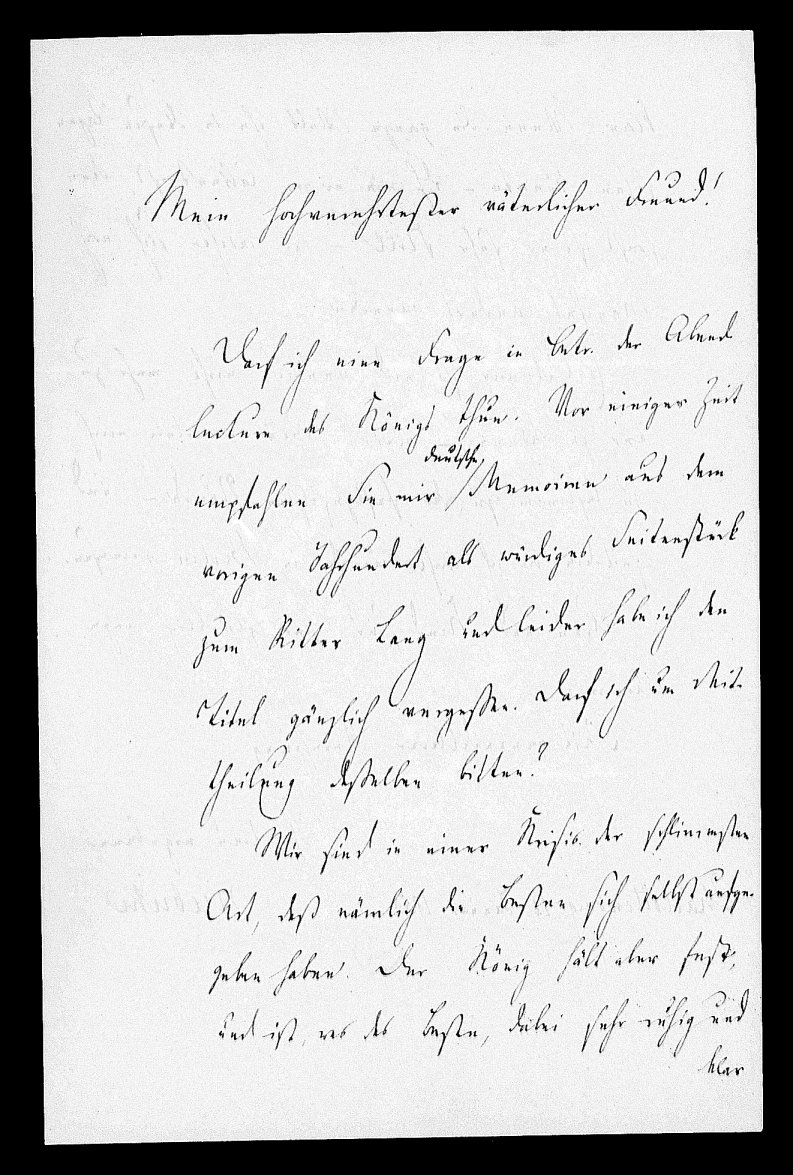 Mein hochverehrtester väterlicher Freund!
Darf ich eine Frage in Betr. der Abend
lecture des Königs thun. Vor einiger Zeit
empfahlen Sie mir /Memoiren aus dem
deutsche
vorigen Jahrhundert als würdiges Seitenstück
zum Ritter Lang und leider habe ich den
Titel gänzlich vergessen. Darf ich um Mit-
theilung desselben bitten?
Wir sind in einer Krisis der schlimmsten
Art, daß nämlich die Besten sich selbst aufge-
geben haben. Der König hält aber fest,
und ist, was das Beste, dabei sehr ruhig und
klar